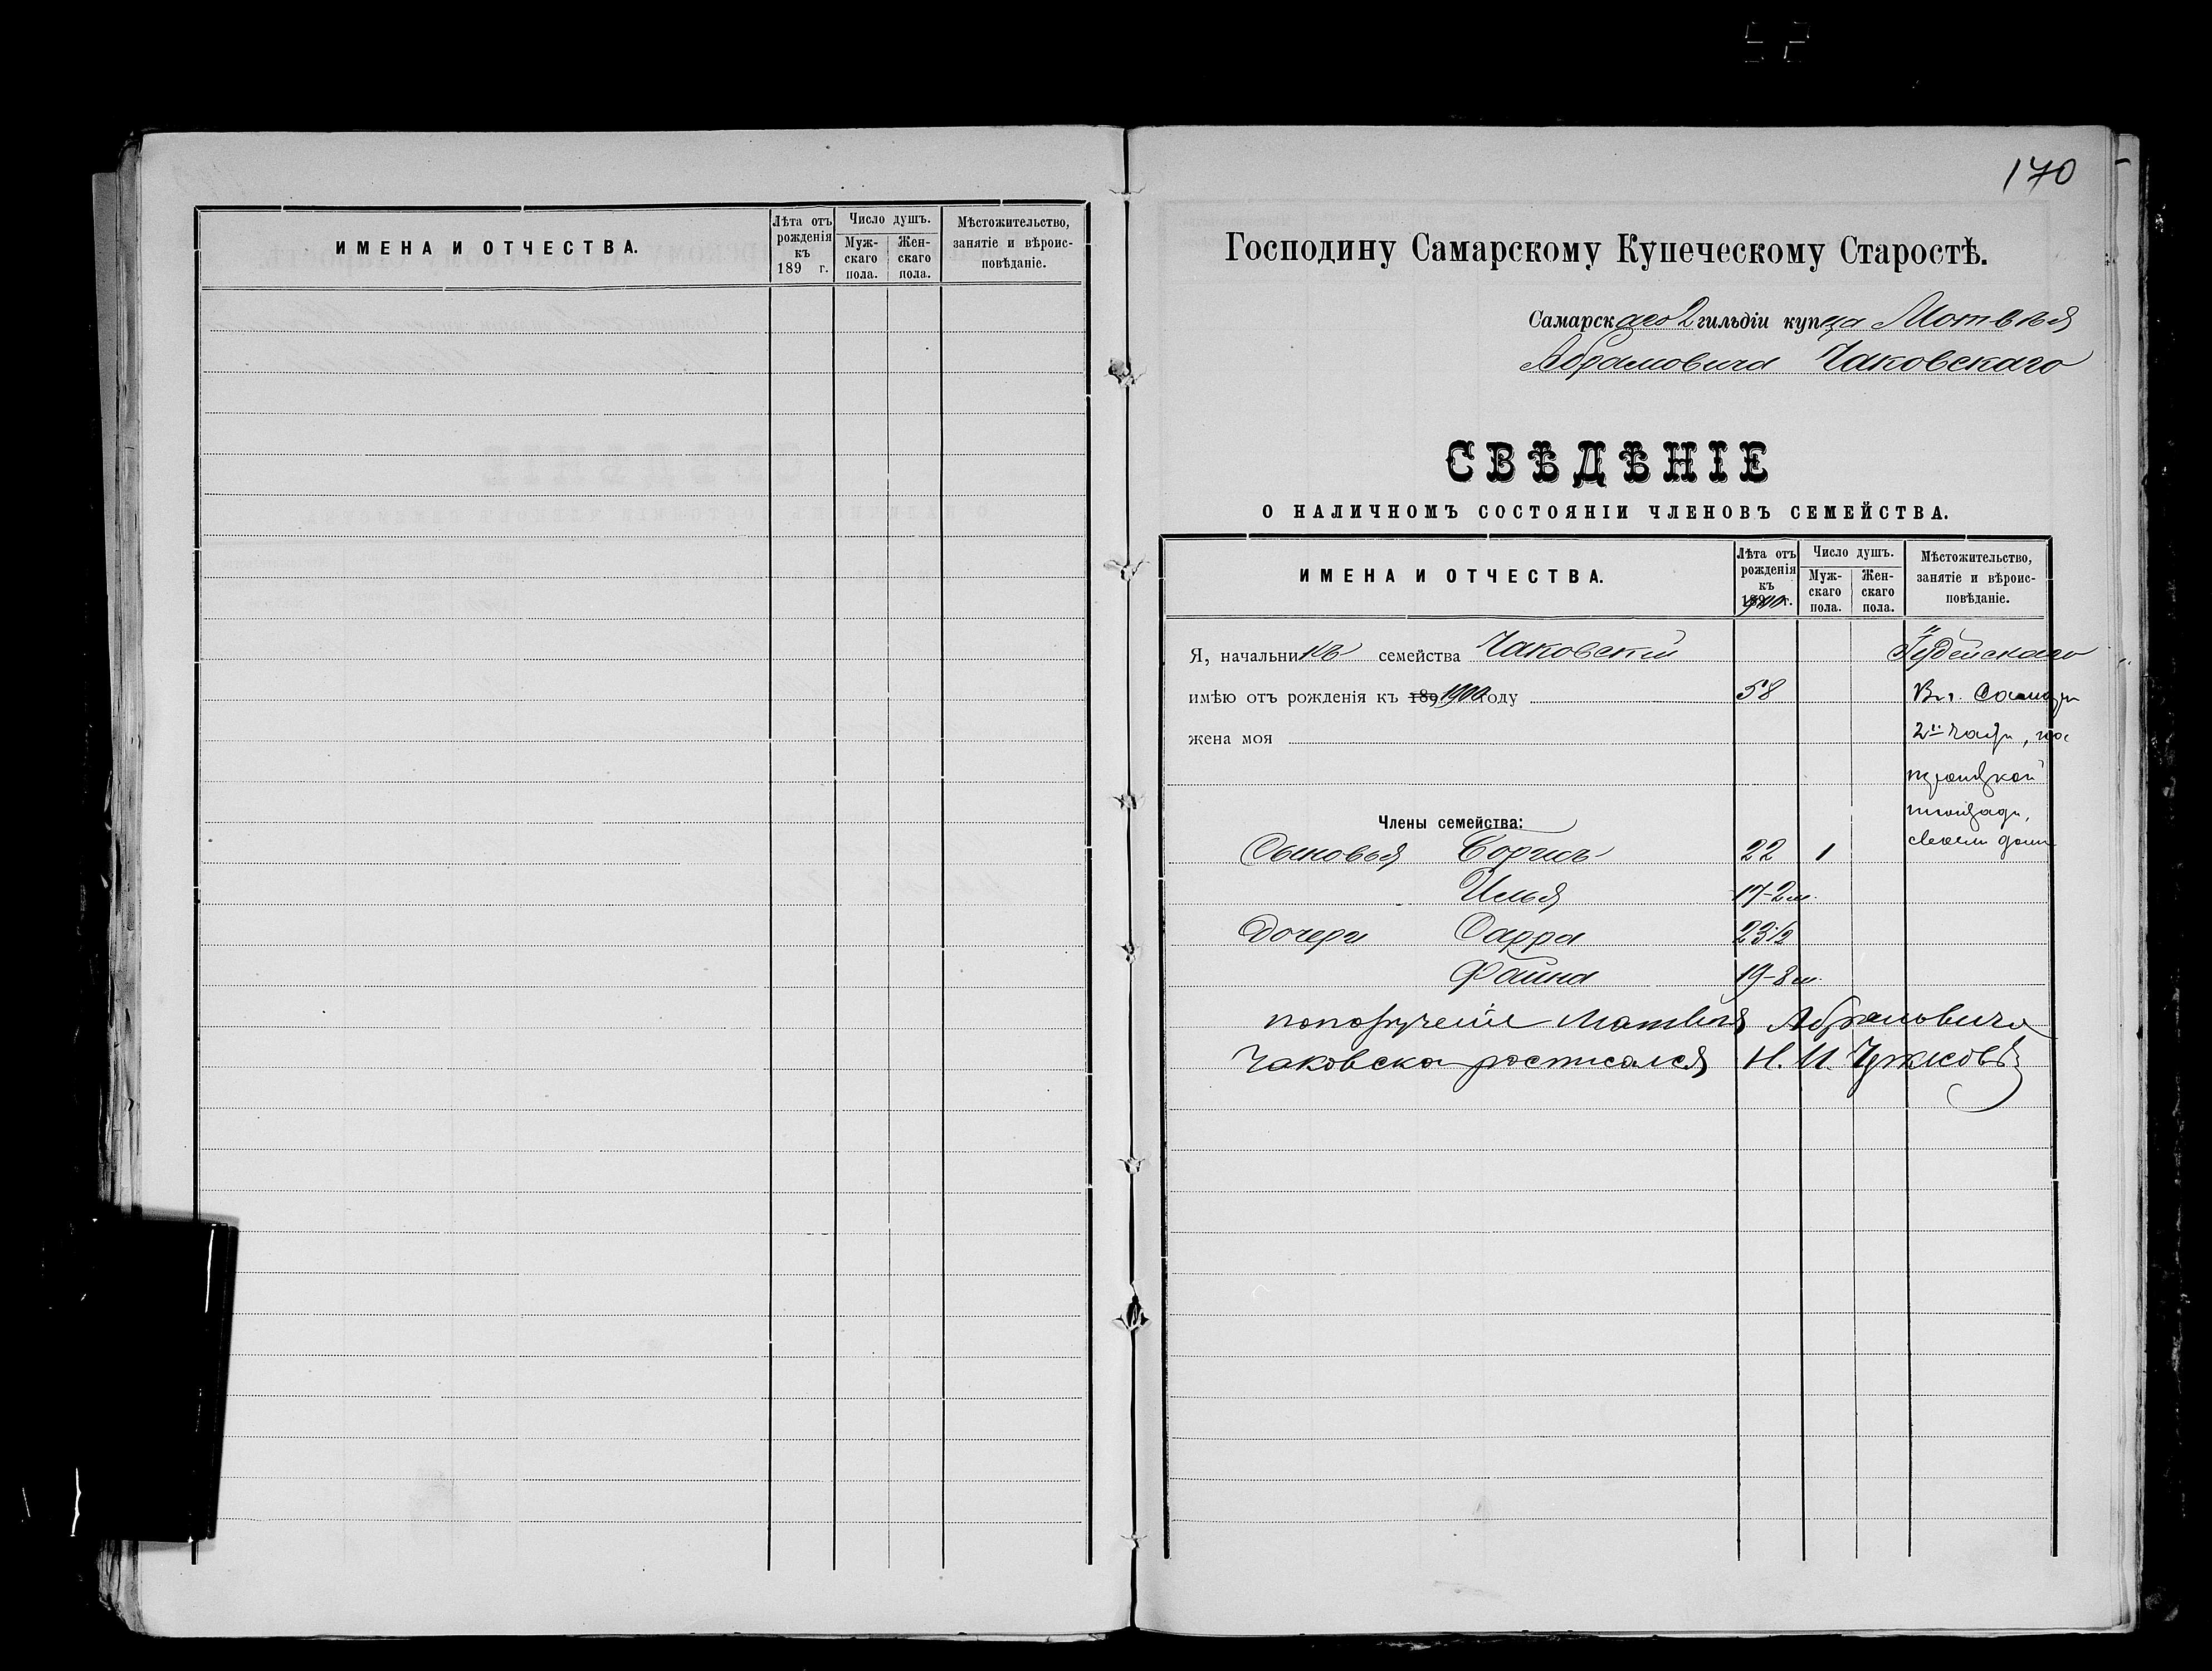 ИМЕНА И ОТЧЕСТВА.
Лѣта отъ рожденія къ 189 г.
Число душъ.
Муж-скаго пола.
Жен-скаго пола.
Мѣстожительство, занятіе и вѣроис-повѣданіе.
170
Господину Самарскому Купеческому Старостѣ.
Самарскаго 2 гильдіи купца Мотвѣя
Абрамовича Чаковскаго
СВѢДѢНІЕ
О НАЛИЧНОМЪ СОСТОЯНІИ ЧЛЕНОВЪ СЕМЕЙСТВА.
ИМЕНА И ОТЧЕСТВА.
Лѣта отъ рожденія къ 1900 г.
Число душъ.
Муж-скаго пола.
Жен-скаго пола.
Мѣстожительство, занятіе и вѣроис-повѣданіе.
Я, начальникъ семейства Чаковскій Іудейскаго
имѣю отъ рожденія къ 189 1900 году 58 В г. Самары
жена моя 2й части, на
троицкой
площади,
Члены семейства:
своем доме
Сыновья Борисъ 22 1
Илья 17-2м.
Дочери Сарра 23 1/2
Фаина 19-8м.
попоручению Матвѣя Абрамовича
Чаковска росписался Н. И.